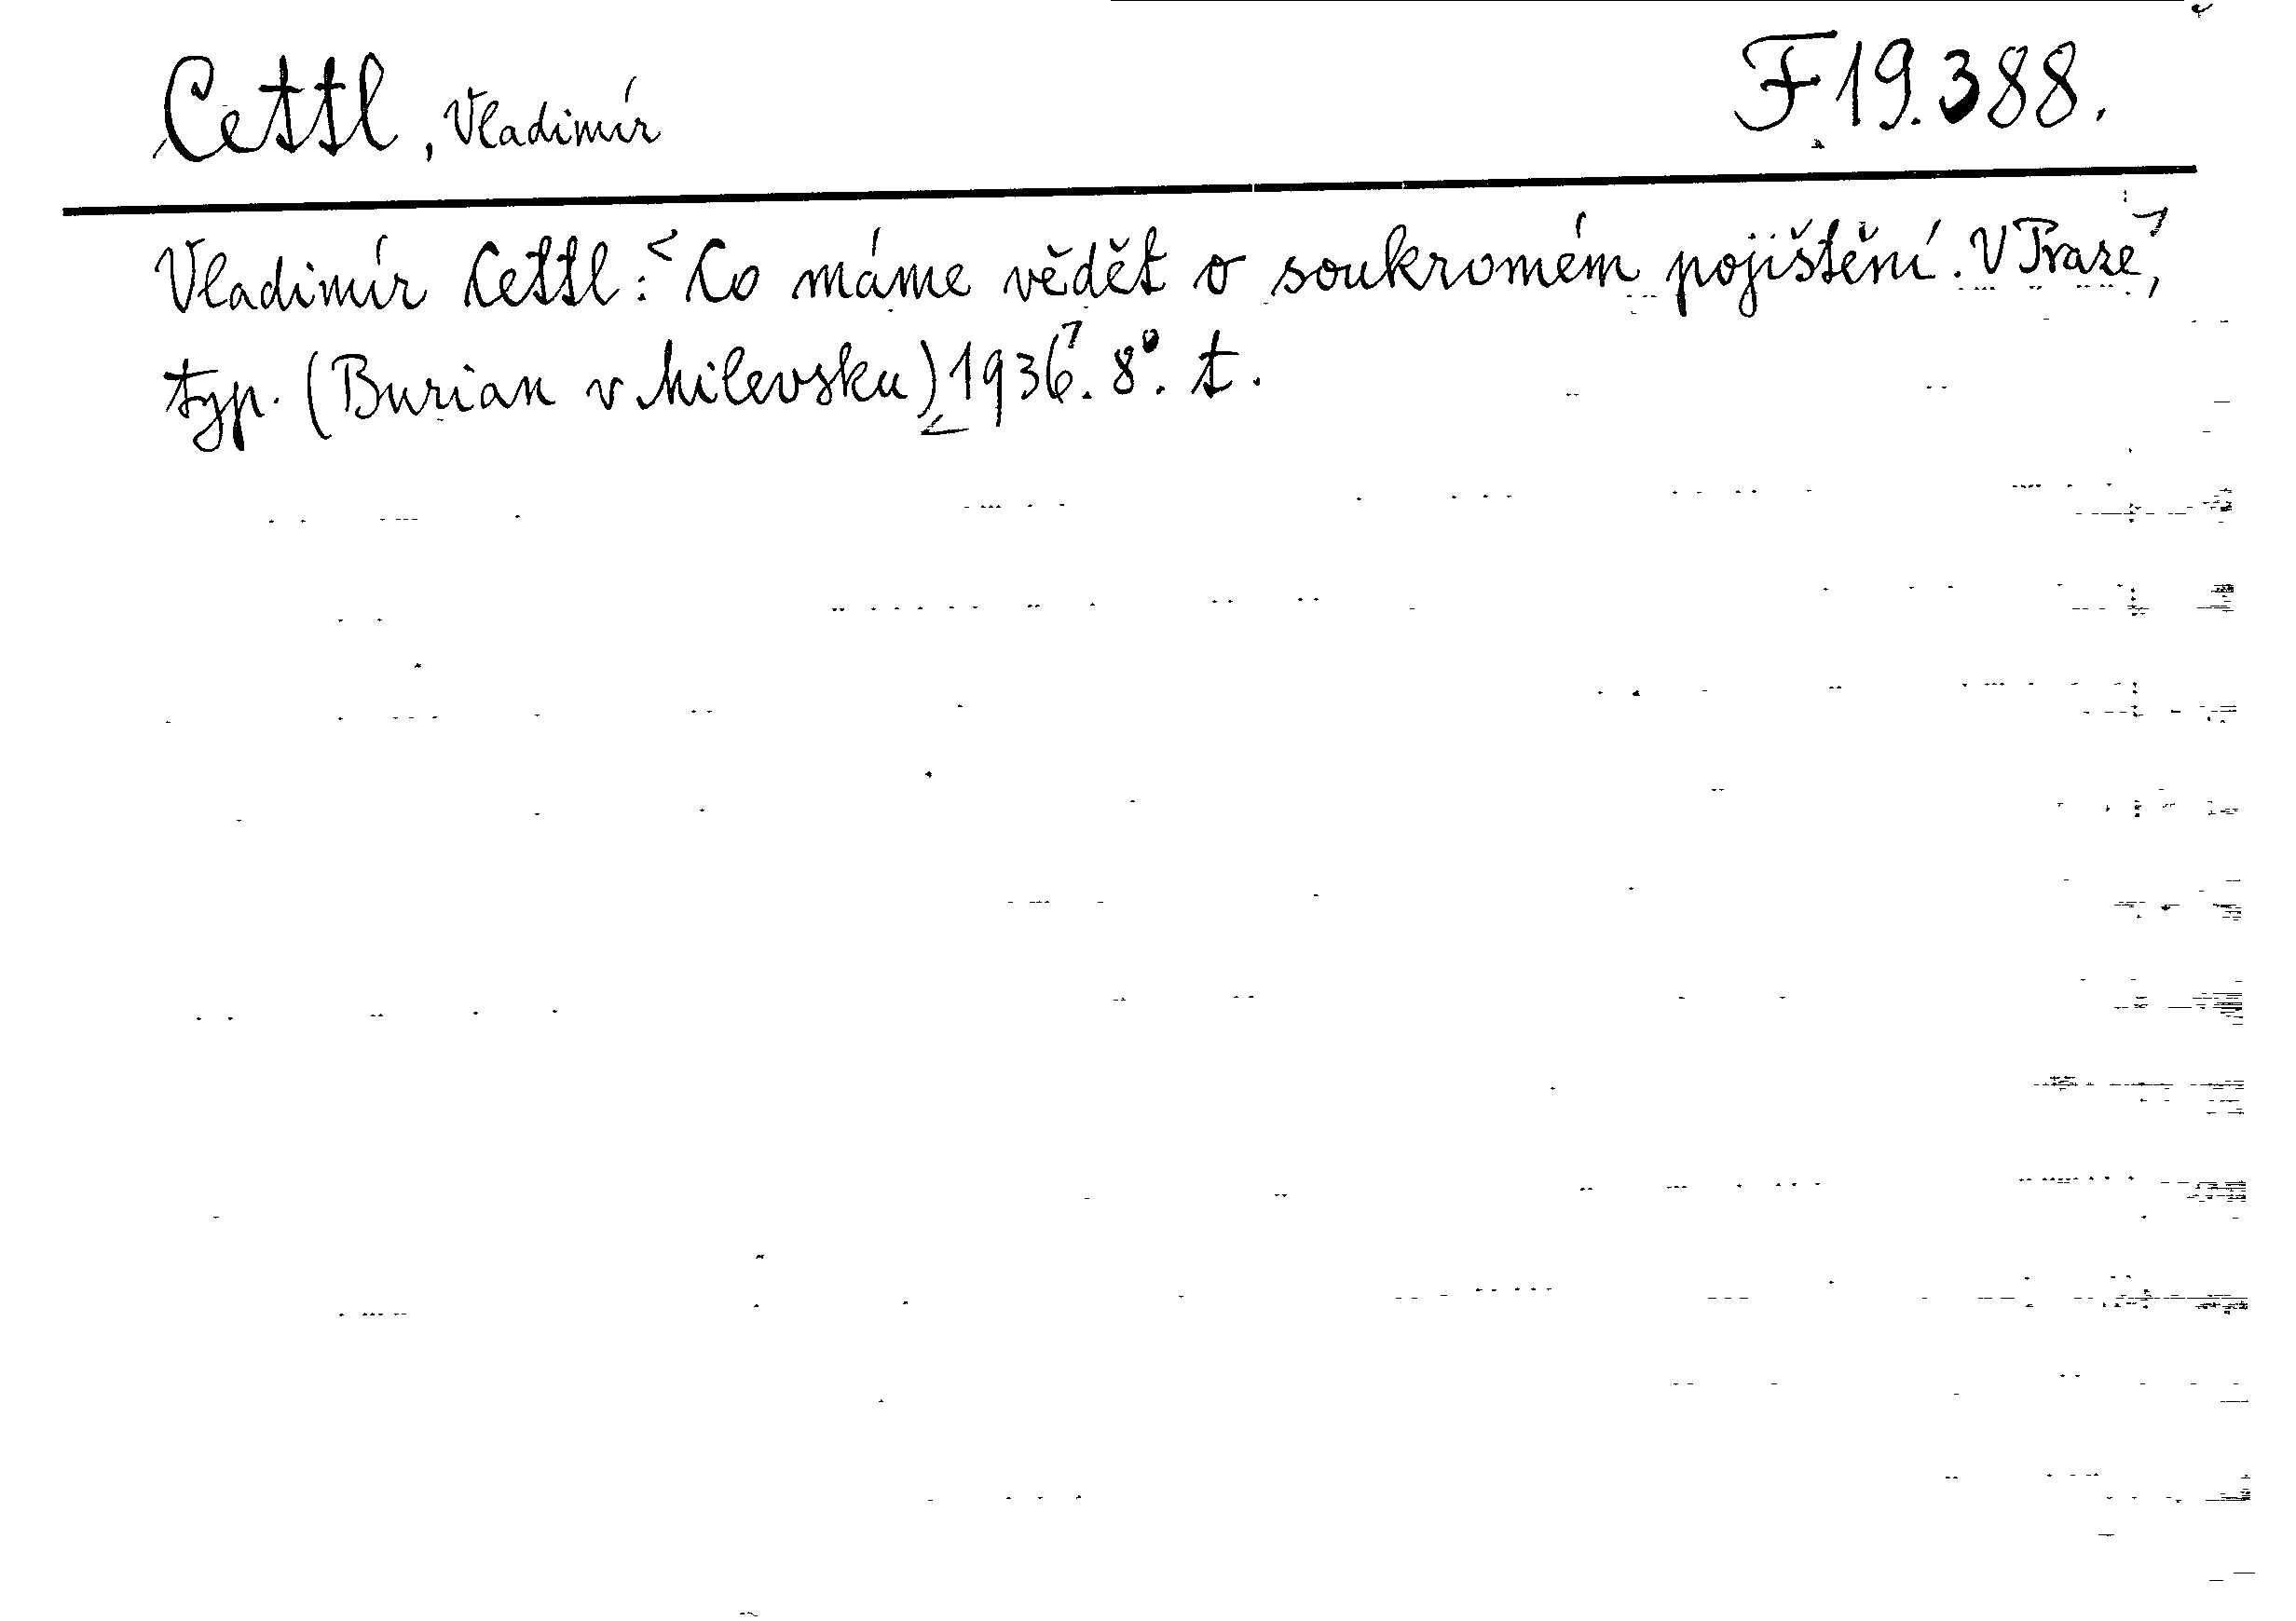 Cettl, Vladimír F 19.388.
Vladimír Cettl: Co máme vědět o soukromém pojištění. V Praze,
typ. (Burian v Milevsku) 1936. 8°. t.